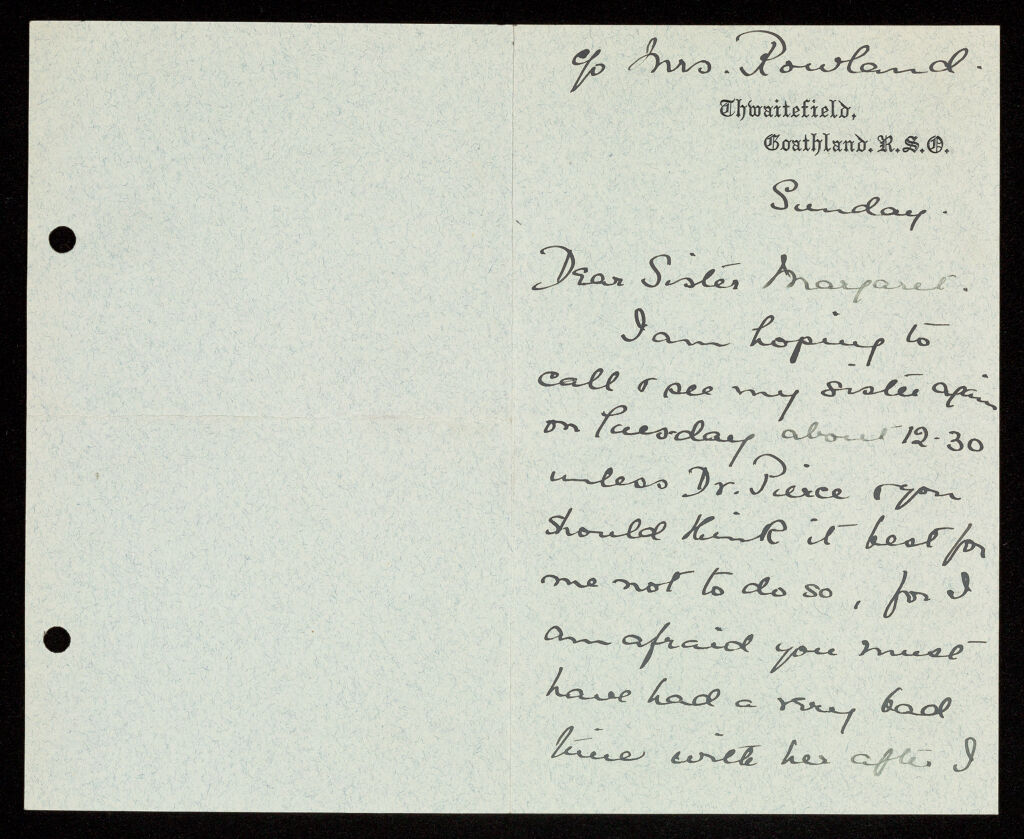 c/o Mrs. Rowland.
Thwaitefield,
Goathland. R.S.O.
Sunday.
Dear Sister Margaret.
I am hoping to
call & see my sister again
on Tuesday about 12-30
unless Dr. Pierce & you
should think it best for
me not to do so, for I
am afraid you must
have had a very bad
time with her after I